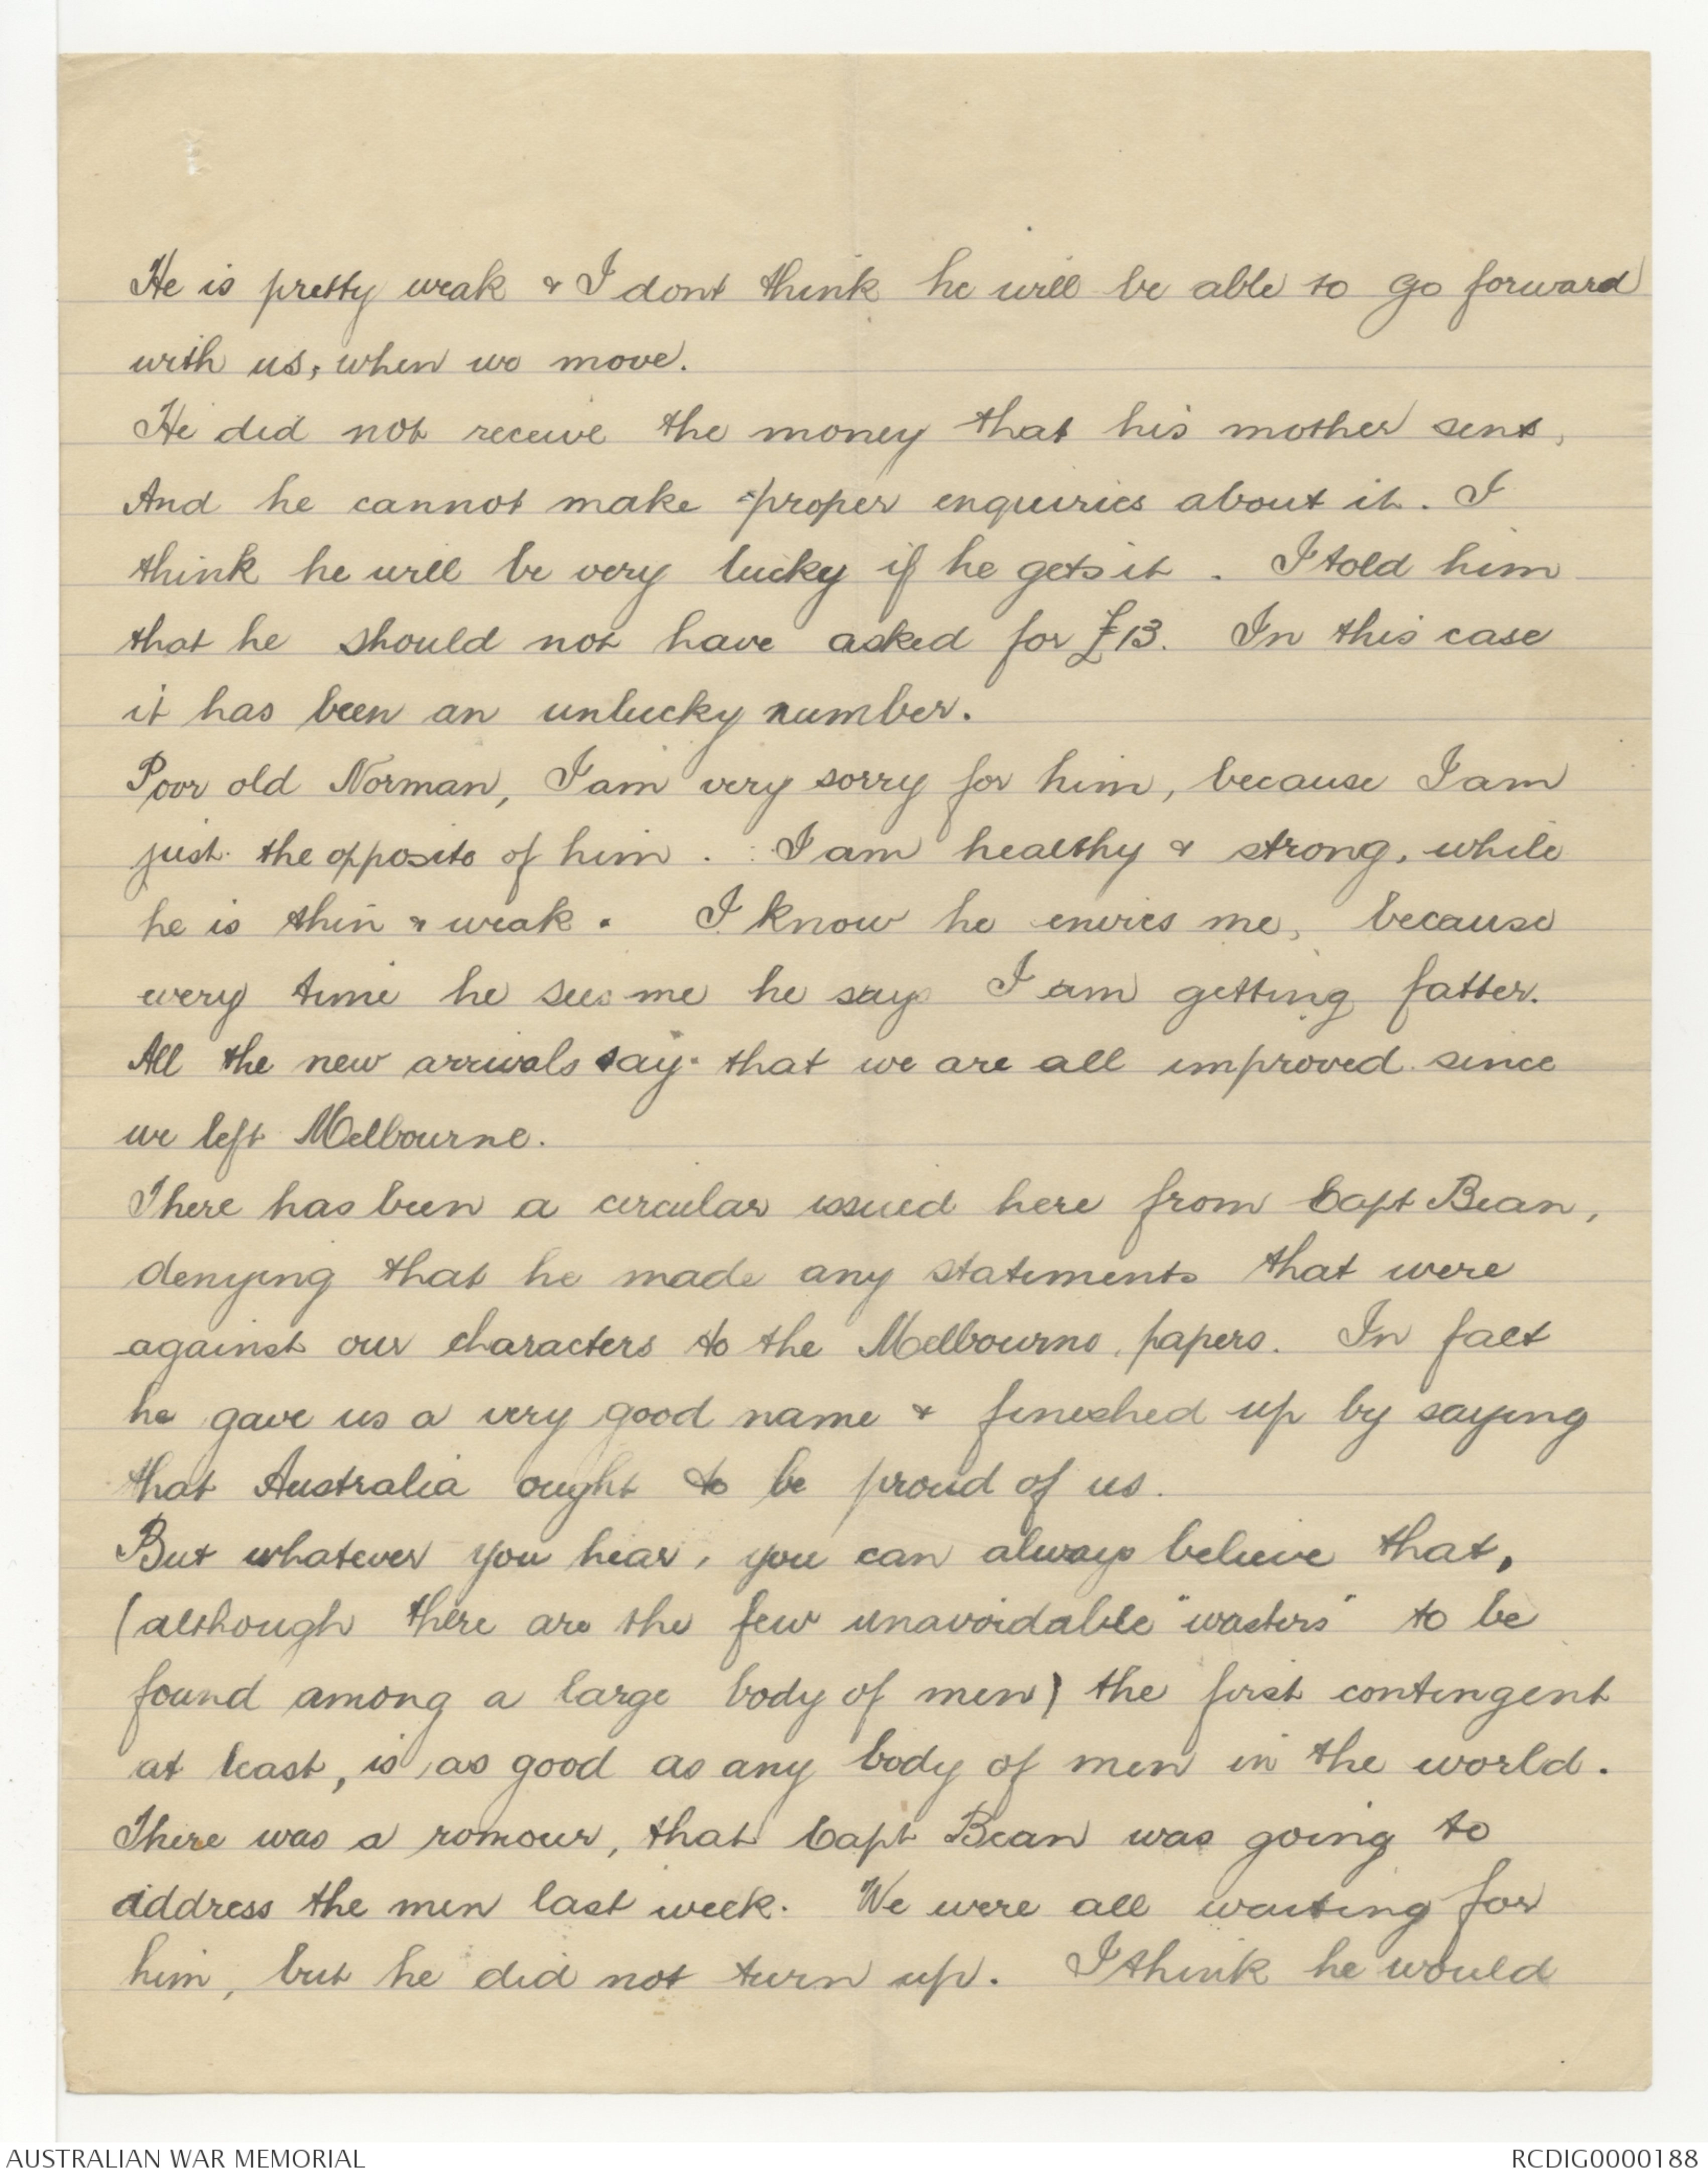 He is pretty weak & I dont think he will be able to go forward
with us, when we move.
He did not receive the money that his mother sent,
And he cannot make proper enquiries about it. I
think he will be very lucky if he gets it. I told him
that he should not have asked for £13. In this case
it has been an unlucky number.
Poor old Norman, I am very sorry for him, because I am
just the opposite of him. I am healthy & strong, while
he is thin & weak. I know he envies me, because
every time he sees me he says I am getting fatter.
All the new arrivals say that we are all improved since
we left Melbourne.
There has been a circular issued here from Capt Bean,
denying that he made any statements that were
against our characters to the Melbourne papers. In fact
he gave us a very good name & finished up by saying
that Australia ought to be proud of us.
But whatever you hear, you can always believe that,
(although there are the few unavoidable "wasters" to be
found among a large body of men) the first contingent
at least, is as good as any body of men in the world.
There was a romour, that Capt Bean was going to
address the men last week. We were all waiting for
him, but he did not turn up. I think he would
AUSTRALIAN WAR MEMORIAL
RCDIG0000188